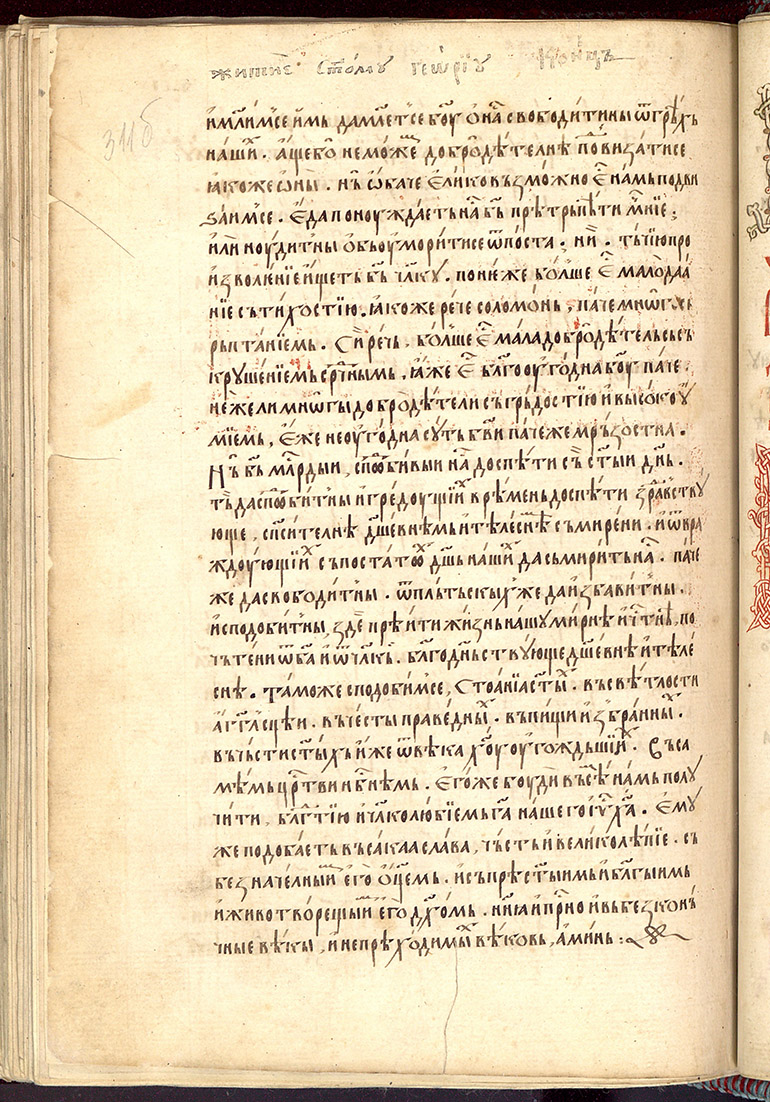 житїе ст҃ому геѡргїу конець
311б
и молимсе ѥмь да млтсе бг҃оу ѡ на свободити ны ѿ грѣхь
наши. аще бо не може добродѣтелнѣ подвизатисе
ꙗкоже ѡны. нь ѡбаче ѥлико възможно ѥ намь подви
ꙁаимсе. ѥда поноуждаѥть на бь прѣтрьпѣти м҃нїе,
или ноудит ны обьоуморитисе ѿ поста, ни. тъчїю про
изволѥнїе ищеть бь чл҃ку. понеже болше ѥ мало даа
нїе съ тихостїю. ꙗкоже рече соломѡнь, паче мнѡгы
рьптанїемь. Сирѣчь. болше ѥ мала добродѣтель съ съ
крушенїемь срⷣчнымь. ꙗже ѥ бл҃гооугодна бг҃оу паче
неже ли мнѡгы добродѣтели съ грьдостїю и высокоу
мїемь, ѥже неоугодна суть бв҃и паче же мрьзостна.
Нь бь млⷭрдыи, сподобивыи на доспѣти съ ст҃ыи дн҃ь.
тъ да сподобит ны и гредоущїи врѣмень доспѣти здравству
юще, спⷭсителнѣ дш҃евнѣмь и тѣлеснѣ съмирени. и ѿ вра
ждоующїи съпостатѡ дш҃ь наши да съмирить на. паче
же да свободит ны. ѿ плътьскых же да избавит ны.
и сподобит ны, зде прѣити жизнь нашу мирнѣ и чтнѣ, по
чьтени ѿ ба и ѿ чл҃кь. бл҃годньствующе дш҃евнѣ и тѣле
снѣ. Таможе сподобимсе, стоанїа ст҃ы. въ свѣтлости
агг҃лсцѣи. въ чести праведны. въ пищи избранны.
въ чьсти ст҃ыхъ иже ѿ вѣка х҃оу оугождьшїи. Въ са
мѣмь црⷭтви нбⷭнѣмь. Ѥгоже боуди въсѣ намь полу
чити, блгⷣтїю и чл҃колюбїемь га нашего іу ха. Ѥму
же подобаѥть въсакаа слава, чьсть и великолѣпїе. съ
безначелныи ѥго оц҃емь. и съ прѣст҃ыимь и бл҃гыимь
и животворещїи ѥго дх҃омь. нн҃ꙗ и прⷭно и вь безконь
чные вѣкы, и непрѣходимы вѣковь, аминь: